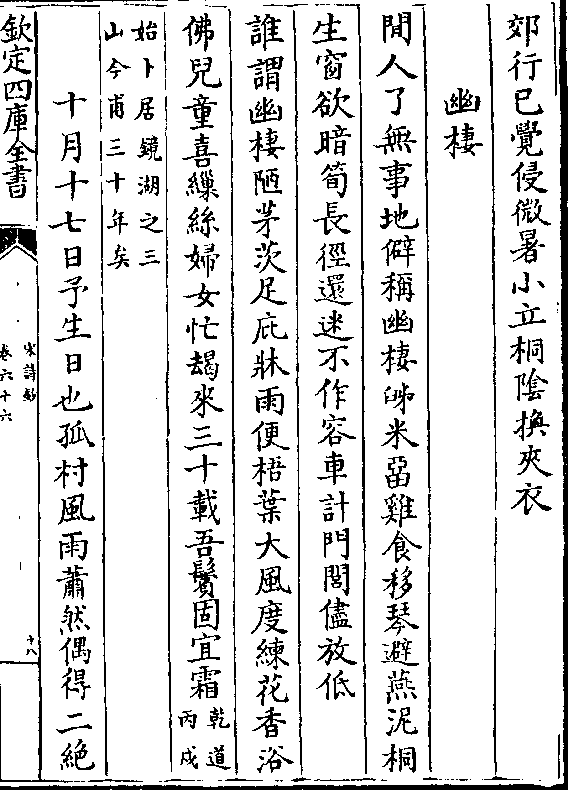 郊行已覺侵微暑小立桐陰換夾衣
幽棲
閒人了無事地僻稱幽棲米畱雞食移琴避燕泥桐
生窗欲暗筍長徑還迷不作容車計門閭儘放低
誰謂幽棲陋茅茨足庇牀雨便梧葉大風度練花香浴
佛兒童喜繅絲婦女忙朅來三十載吾鬢固宜霜
乾道
丙戍
始卜居鏡湖之三
山今甫三十年矣
十月十七日予生日也孤村風雨蕭然偶得二絶
欽定四庫全書
宋詩鈔
卷六十六
十八